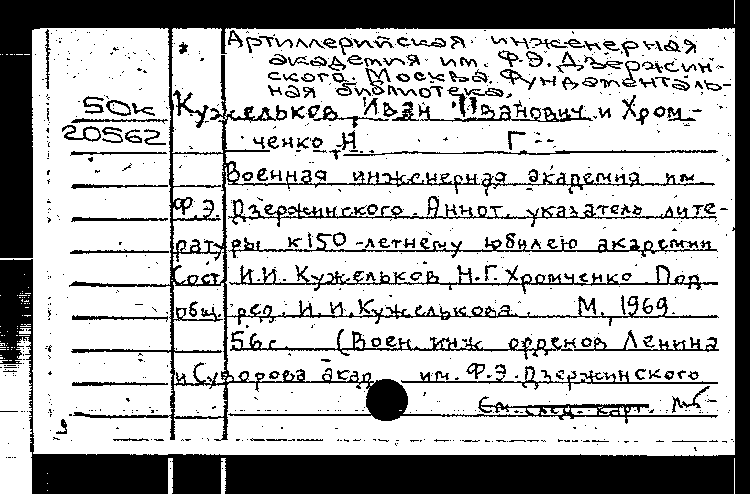 * Артиллерийская инженерная
академия им. Ф.Э. Дзержин-
ского. Москва. Фундаменталь-
ная библиотека.
50к Кужельков, Иван Иванович и Хром-
20562 ченко, Н Г.
Военная инженерная академия им.
Ф.Э. Дзержинского. Аннот. указатель лите-
ратуры к 150-летнему юбилею академии
Сост. И.И. Кужельков, Н.Г. Хромченко Под
общ. ред. И.И. Кужелькова. М., 1969.
56 с. (Воен. инж. орденов Ленина
и Суворова акад. им. Ф.Э. Дзержинского
См. след. карт.